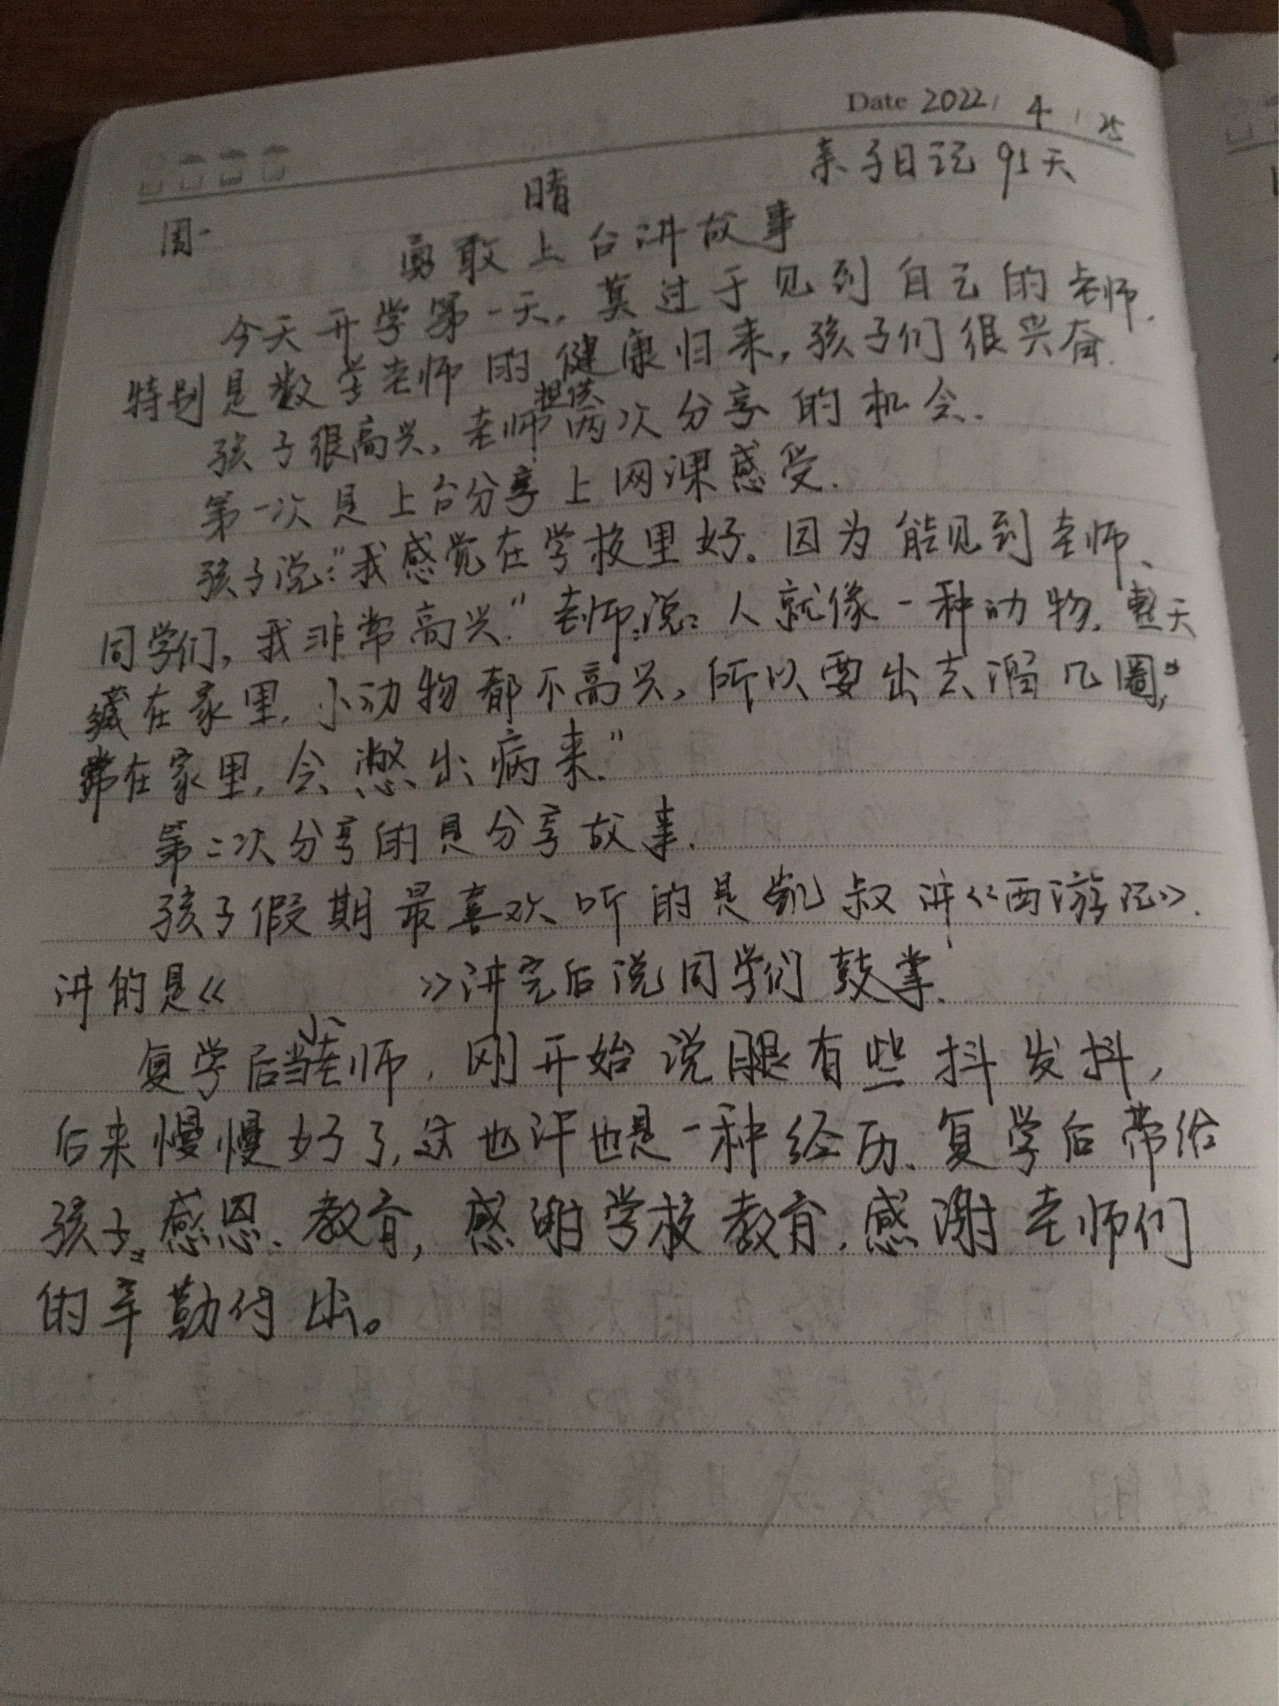 Date 2022 / 4 / 25
亲子日记 91天
周一 晴
勇敢上台讲故事
今天开学第一天,莫过于见到自己的老师.
特别是数学老师的健康归来,孩子们很兴奋.
孩子很高兴,老师提供两次分享的机会.
第一次是上台分享上网课感受.
孩子说:"我感觉在学校里好。因为能见到老师、
同学们,我非常高兴."老师说:人就像一种动物.整天
藏在家里,小动物都不高兴,所以要出去溜几圈,"
常在家里,会憋出病来."
第二次分享的是分享故事.
孩子假期最喜欢听的是凯叔讲《西游记》.
讲的是《 》讲完后说同学们鼓掌.
复学后当小老师,刚开始说腿有些抖发抖,
后来慢慢好了,这也许也是一种经历.复学后带给
孩子感恩.教育,感谢学校教育.感谢老师们
的辛勤付出。